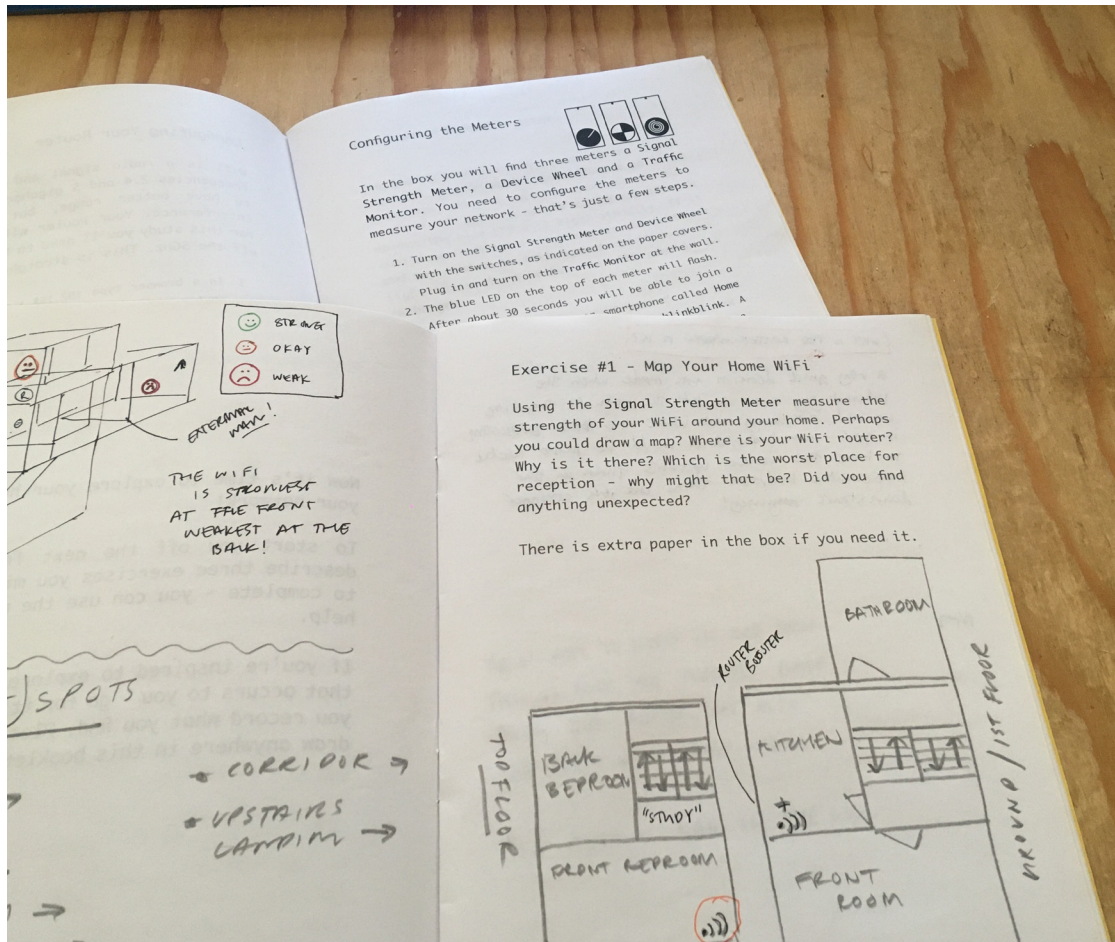 Configuring the Meters
In the box you will find three meters a Signal
Strength Meter, a Device Wheel and a Traffic
Monitor. You need to configure the meters to
measure your network - that's just a few steps.
1. Turn on the Signal Strength Meter and Device Wheel
with the switches, as indicated on the paper covers.
Plug in and turn on the Traffic Monitor at the wall.
2. The blue LED on the top of each meter will flash.
After about 30 seconds you will be able to join a
smartphone called Home
blinkblink. A
STRONG
OKAY
WEAK
R
EXTERNAL
WALL!
THE WIFI
IS STRONGEST
AT THE FRONT
WEAKEST AT THE
BACK!
SPOTS
CORRIDOR →
UPSTAIRS
LANDING →
Exercise #1 - Map Your Home WiFi
Using the Signal Strength Meter measure the
strength of your WiFi around your home. Perhaps
you could draw a map? Where is your WiFi router?
Why is it there? Which is the worst place for
reception - why might that be? Did you find
anything unexpected?
There is extra paper in the box if you need it.
TOP FLOOR
BACK
BEDROOM
"STUDY"
FRONT BEDROOM
ROUTER
BOOSTER
BATHROOM
KITCHEN
FRONT
ROOM
GROUND/1ST FLOOR